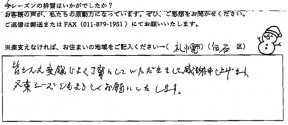 今シーズンの排雪はいかがでしたか？
お客様の声が、私たちの原動力になっています。ぜひ、ご感想をお聞かせください。
ご返信は郵送または FAX（011-879-1951）にてお願いいたします。
※差支えなければ、お住まいの地域をご記入ください→（札幌市）（白石 区）
皆さん大変感じよく丁寧にしていただきまして感謝申し上げます。
又来シーズンもよろしくお願いいたします。